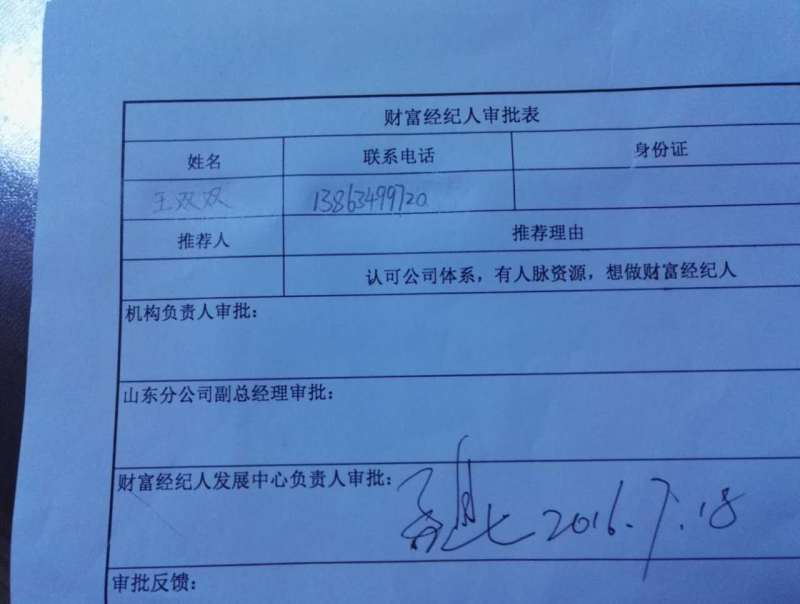 财富经纪人审批表
姓名 联系电话 身份证
王双双 13863499720
推荐人 推荐理由
认可公司体系，有人脉资源，想做财富经纪人
机构负责人审批：
山东分公司副总经理审批：
财富经纪人发展中心负责人审批： 2016.7.18
审批反馈：